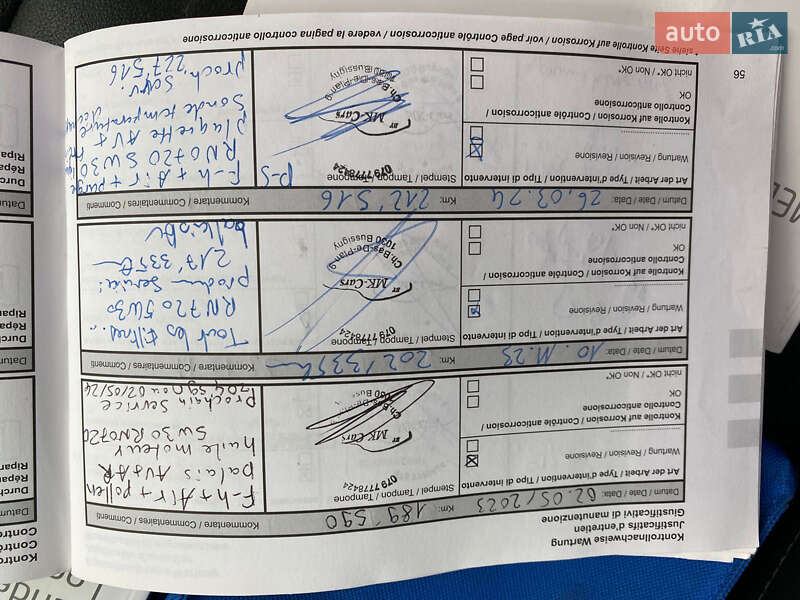 Kontrollnachweise Wartung
Justificatifs d'entretien
Giustificativi di manutenzione
Datum / Date / Data: 02.05/2023 Km: 189'590 Kommentare / Commentaires / Commenti
Art der Arbeit / Type d'intervention / Tipo di intervento
Wartung / Revision / Revisione
Kontrolle auf Korrosion / Contrôle anticorrosion /
Controllo anticorrosione
OK
nicht OK* / Non OK*
Stempel / Tampon / Tampone
079 7778424
BY MK-Cars
Ch.Bas-De-Plan 9
1030 Buss
F-h + Air + pollen
palais AV+AR
huile moteur
5W30 RN0720
Prochain Service
02/05/24
Datum / Date / Data: 10.11.23 Km: 202'335 Kommentare / Commentaires / Commenti
Art der Arbeit / Type d'intervention / Tipo di intervento
Wartung / Revision / Revisione
Kontrolle auf Korrosion / Contrôle anticorrosion /
Controllo anticorrosione
OK
nicht OK* / Non OK*
Stempel / Tampon / Tampone
079 7778424
BY MK-Cars
Ch.Bas-De-Plan 9
1030 Bussigny
Tout les filtres..
RN720 5W30
Service:
217'335
Datum / Date / Data: 26.03.24 Km: 212'516 Kommentare / Commentaires / Commenti
Art der Arbeit / Type d'intervention / Tipo di intervento
Wartung / Revision / Revisione
Kontrolle auf Korrosion / Contrôle anticorrosion /
Controllo anticorrosione
OK
nicht OK* / Non OK*
Stempel / Tampon / Tampone
P-S
079 7778424
BY MK-Cars
Ch.Bas-De-Plan 9
1030 Bussigny
F-h + Air + purge
RN0720 5W30
plaquette AV +
Sonde temperature
proch. Serv
227'516
* siehe Seite Kontrolle auf Korrosion / voir page Contrôle anticorrosion / vedere la pagina controllo anticorrosione
56
auto RIA
.com